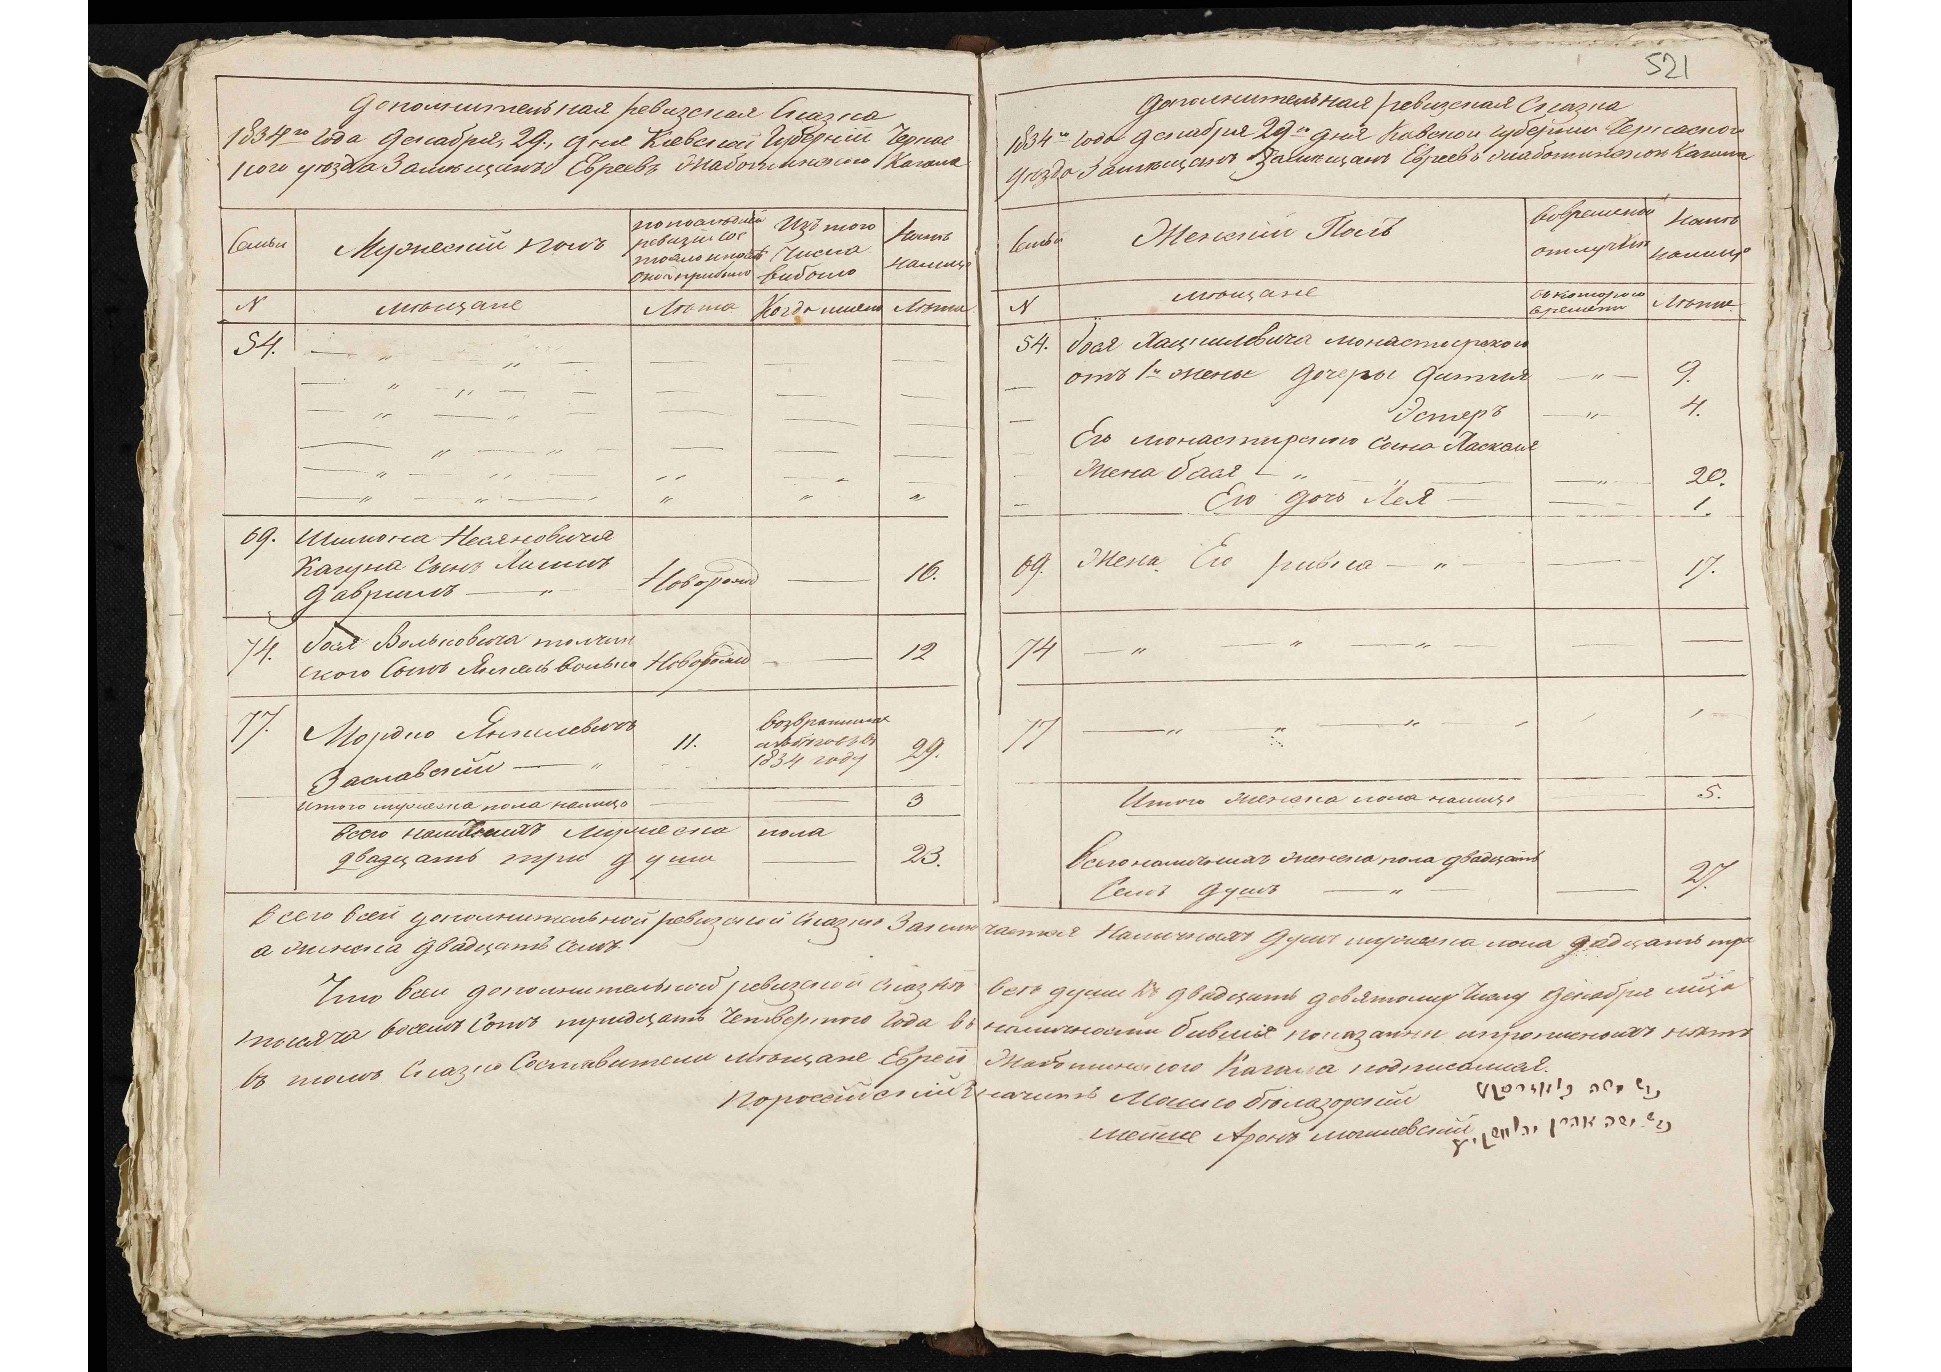 Дополнительная ревизская сказка
1834го года декабря, 29, дня Киевской Губернии Черкас
кого уезда Евреевъ Жаботинского Кагала
Семьи
Мужеский полъ
по последней ревизии сос
Изъ того числа выбыло
Ныне налицо
N
мещане
Лета
Когда именно
Лета
54.
69. Шимона
Кагуна Сынъ
Гаврилъ — „ Новорожд — 16.
74. Бося Вольковича
ского Сынъ Янкель Волько Новорожд — 12
77. Мордко Янкелевичъ
Заславский — „ 11. 29.
возвратился
1834 году
Итого мужеска пола налицо — 3
Всего наличныхъ Мужеска пола
двадцать три души — 23.
521
Дополнительная ревизская Сказка
1834го года декабря 29го дня Киевской губернии Черкаского
уезда Евреевъ Жаботинского Кагала
Семьи
Женский Полъ
Во временной отлучке
Ныне налицо
N
мещане
съ которого времени
Лета
54. Бося монастирского
отъ 1й жены дочеры — „ — 9.
Эстеръ — „ — 4.
Его монастирского сына
Жена Бася — „ — „ — 20.
Его дочь Лея — 1.
69. Жена Его ривка — „ — 17.
74 — „ — „ — „ —
77 — „ — „ — „ —
Итого женска пола налицо — 5.
Всего наличныхъ женска пола двадцать
Семь душъ — „ — 27.
Всего всей дополнительной ревизской Сказке Заключается Наличныхъ Душъ мужеска пола двадцать три
а женска двадцать Семь
Что всеи дополнительной ревизской сказке все души Къ двадцать девятому Числу декабря мца
тысяча восемъ Сотъ тридцать Четвертого Года въ наличности бывшие показаны и прописныхъ нетъ
въ томъ Сказко Составители мещане Евреи Жаботинского Кагала подписались.
По российский Значитъ Мошко Белазорский
Мейше Аронъ могилевский